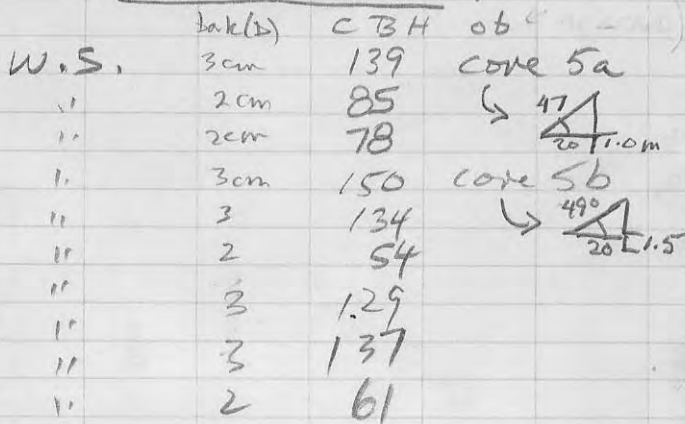 bak(D) CBH ob
W.S. 3cm 139 core 5a
" 2cm 85 47
" 2cm 78 20 1.0m
" 3cm 150 core 5b
" 3 134 49°
" 2 54 20 1.5
" 3 1.29
" 3 137
" 2 61